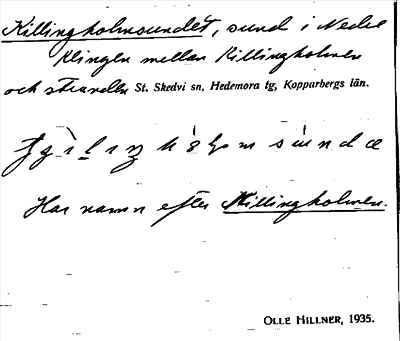 Killingholmsundet, sund i Nedre
Klingen mellan Killingholmen
och stranden St. Skedvi sn, Hedemora tg, Kopparbergs län.
Har namn efter Killingholmen.
OLLE HILLNER, 1935.